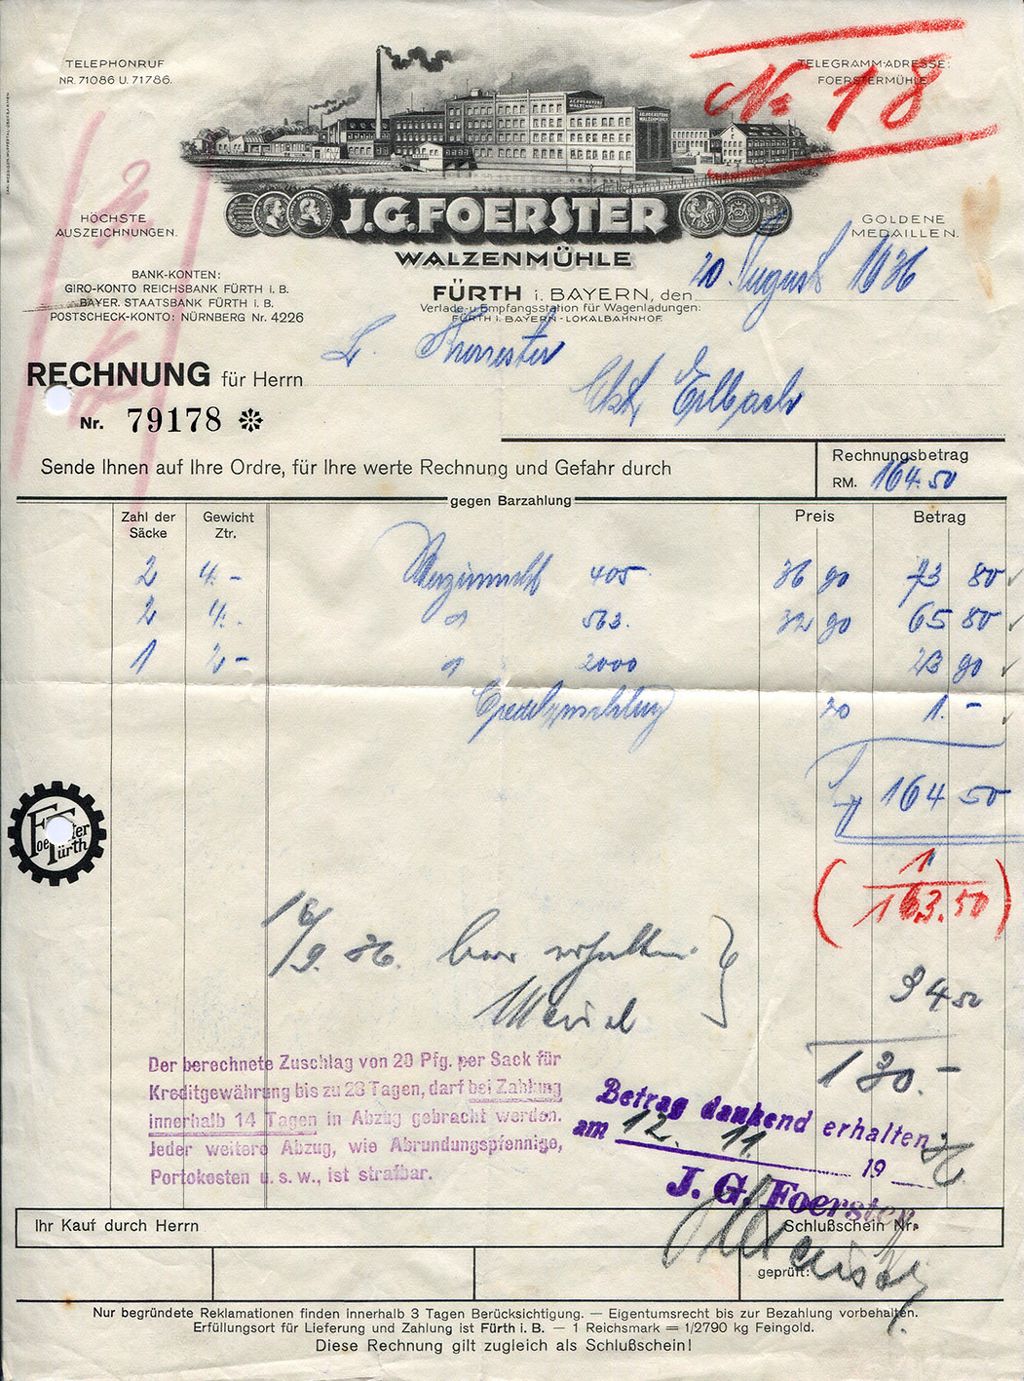 TELEPHONRUF
NR. 71086 U. 71786.
TELEGRAMM-ADRESSE:
FOERSTERMÜHLE
№ 18
J.G. FOERSTER
WALZENMÜHLE
J.G. FOERSTER
WALZENMÜHLE
HÖCHSTE
AUSZEICHNUNGEN.
GOLDENE
MEDAILLEN.
BANK-KONTEN:
GIRO-KONTO REICHSBANK FÜRTH I. B.
BAYER. STAATSBANK FÜRTH I. B.
POSTSCHECK-KONTO: NÜRNBERG Nr. 4226
FÜRTH i. BAYERN, den 20. August 1936
Verlade- u. Empfangsstation für Wagenladungen:
FÜRTH I. BAYERN - LOKALBAHNHOF.
RECHNUNG für Herrn
Erlbach
Nr. 79178
Sende Ihnen auf Ihre Ordre, für Ihre werte Rechnung und Gefahr durch
Rechnungsbetrag
RM. 164.50
gegen Barzahlung
Zahl der Säcke Gewicht Ztr. Preis Betrag
2 4.- 405 36 90 73 80
2 4.- 563. 32 90 65 80
1 2.- 2000 23 90
20 1.-
164 50
1
(163.50)
16/9. 36. bar erhalten
34 50
130.-
Der berechnete Zuschlag von 20 Pfg. per Sack für
Kreditgewährung bis zu 28 Tagen, darf bei Zahlung
innerhalb 14 Tagen in Abzug gebracht werden.
Jeder weitere Abzug, wie Abrundungspfennige,
Portokosten u. s. w., ist strafbar.
Betrag dankend erhalten
am 12. 11. 1936
J. G. Foerster
Foerster
Fürth
Ihr Kauf durch Herrn
Schlußschein Nr.
geprüft:
Nur begründete Reklamationen finden innerhalb 3 Tagen Berücksichtigung. — Eigentumsrecht bis zur Bezahlung vorbehalten.
Erfüllungsort für Lieferung und Zahlung ist Fürth i. B. — 1 Reichsmark = 1/2790 kg Feingold.
Diese Rechnung gilt zugleich als Schlußschein!